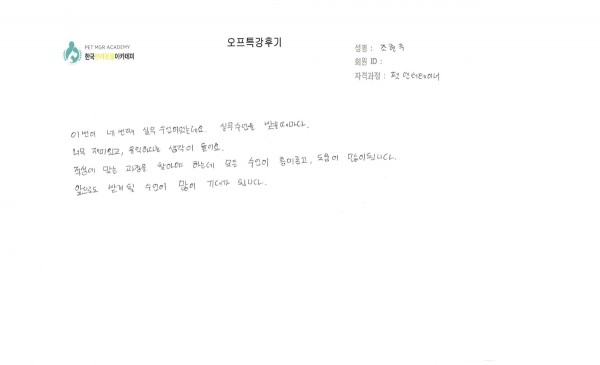 PET MGR ACADEMY
한국반려동물아카데미
오프특강후기
성명 : 조
회원 ID :
자격과정 : 펫 엔터테이너
이번이 네 번째 실무 수업이었는데요. 실무수업을 받을때마다.
너무 재미있고, 유익하다는 생각이 들어요.
적성에 맞는 과정을 찾아야 하는데 모든 수업이 흥미롭고, 도움이 많이됩니다.
앞으로도 받게 될 수업이 많이 기대가 됩니다.